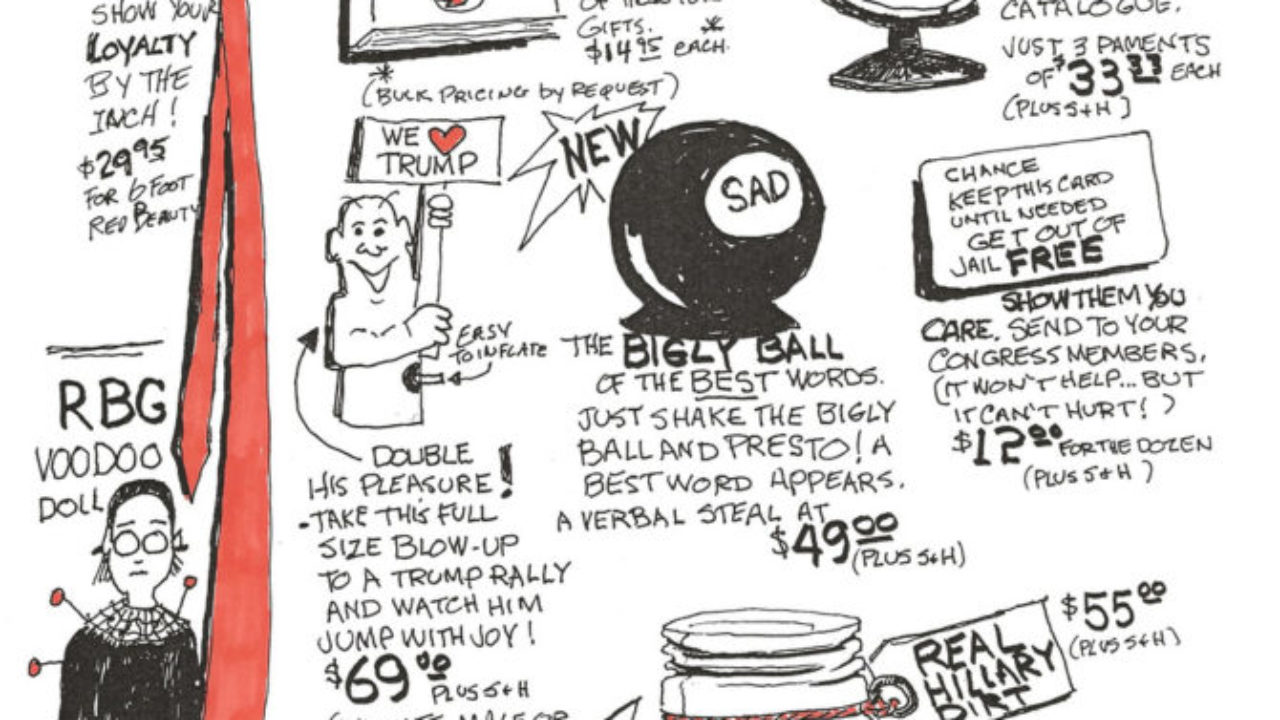 SHOW YOUR
LOYALTY
BY THE
INCH!
$29.95
FOR 6 FOOT
RED BEAUTY
RBG
VOODOO
DOLL
GIFTS. *
$14.95 EACH.
*
(BULK PRICING by REQUEST)
WE
TRUMP
EASY
TO INFLATE
DOUBLE
HIS PLEASURE!
-TAKE THIS FULL
SIZE BLOW-UP
TO A TRUMP RALLY
AND WATCH HIM
JUMP WITH JOY!
$69.00
PLUS S+H
NEW
SAD
THE BIGLY BALL
OF THE BEST WORDS.
JUST SHAKE THE BIGLY
BALL AND PRESTO! A
BEST WORD APPEARS.
A VERBAL STEAL AT
$49.00
(PLUS S+H)
CATALOGUE.
JUST 3 PAMENTS
OF $33.33 EACH
(PLUS S+H)
CHANCE
KEEP THIS CARD
UNTIL NEEDED
GET OUT OF
JAIL FREE
SHOW THEM YOU
CARE. SEND TO YOUR
CONGRESS MEMBERS.
(IT WON'T HELP... BUT
IT CAN'T HURT!)
$12.00 FOR THE DOZEN
(PLUS S+H)
$55.00
(PLUS S+H)
REAL
HILLARY
DIRT